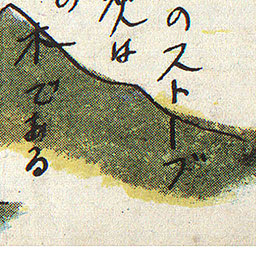 のストーブ
次は
の
木である